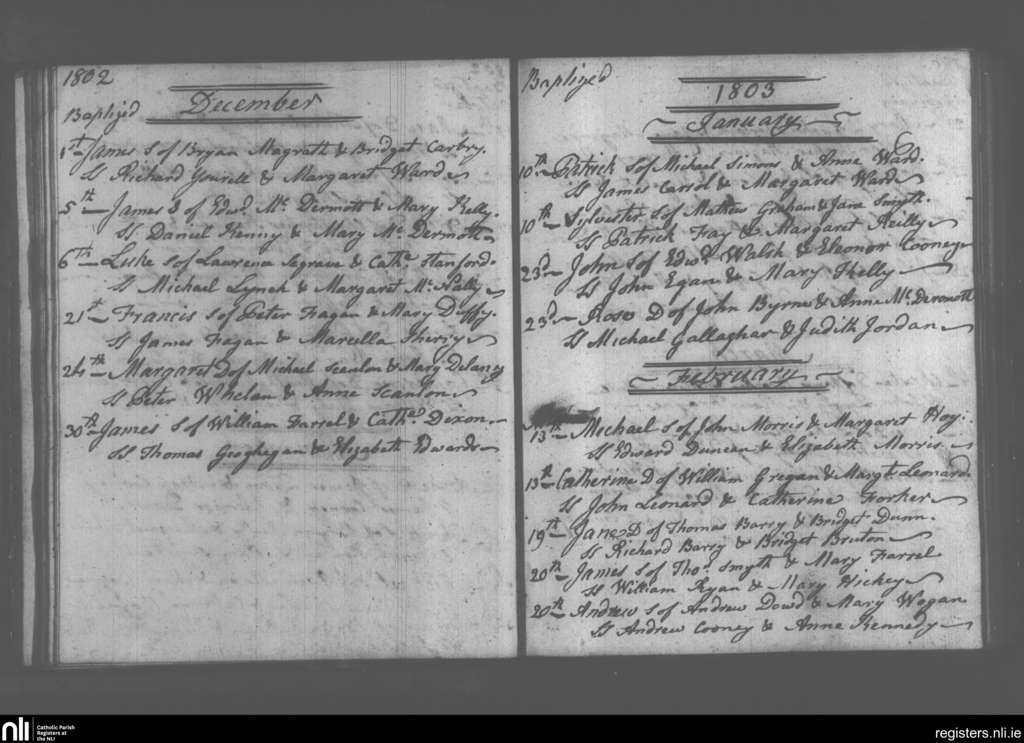 1802
December
Baptized
1st James S of Bryan Magrath & Bridget Carbry.
Ss Richard Yourell & Margaret Ward
5th James S of Edwd. Mc. Dermott & Mary Kelly.
Ss Daniel Kenny & Mary Mc. Dermott
6th Luke S of Lawrence Segrave & Cathe. Stanford.
Ss Michael Lynch & Margaret Mc. Nally
21st Francis S of Peter Fagan & Mary Duffy.
Ss James Fagan & Marcella Sherry
24th Margaret D of Michael Scanlon & Mary Delaney
Ss Peter Whelan & Anne Scanlon
30th James S of William Farrel & Cathe. Dixon.
Ss Thomas Geoghegan & Elizabeth Edwards
Baptized
1803
January
10th Patrick S of Michael Simons & Anne Ward.
Ss James Carrol & Margaret Ward
10th Sylvester S of Mathew Graham & Jane Smyth.
Ss Patrick Fay & Margaret Reilly
23d John S of Edwd. Walsh & Eleonor Cooney
Ss John Egan & Mary Skelly
23d Rose D of John Byrne & Anne Mc. Dermott
Ss Michael Gallaghar & Judith Jordan
February
13th Michael S of John Morris & Margaret Hoy.
Ss Edward Duncan & Elizabeth Morris
13th Catherine D of William Gregan & Margt. Leonard
Ss John Leonard & Catherine Forker
19th Jane D of Thomas Barry & Bridget Dunn.
Ss Richard Barry & Bridget Bruton
20th James S of Thos. Smyth & Mary Farrel
Ss William Ryan & Mary Hickey
20th Andrew S of Andrew Dowd & Mary Wogan
Ss Andrew Cooney & Anne Kennedy
nli
Catholic Parish
Registers at
the NLI
registers.nli.ie